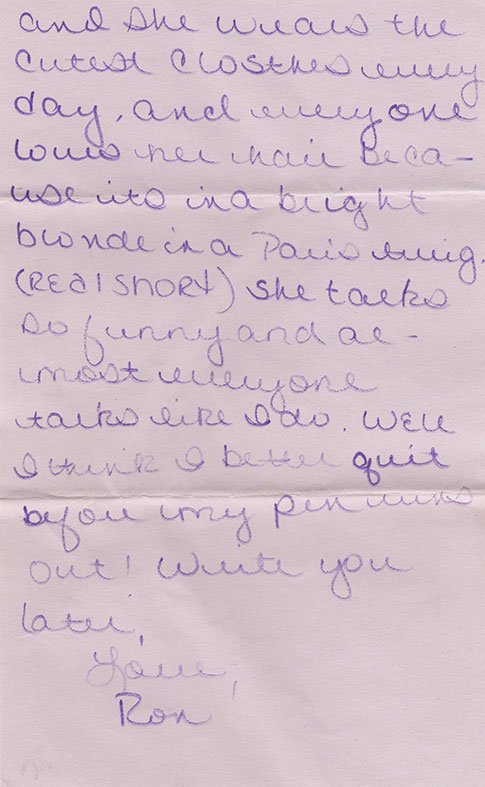 and she wears the
cutest closthes every
day, and everyone
loves her hair beca-
use its in a bright
blonde in a Paris swig.
(REAl SHORt) she talks
so funny and al-
most everyone
talks like I do. Well
I think I better quit
before my pen runs
out! Write you
later,
Love,
Ron